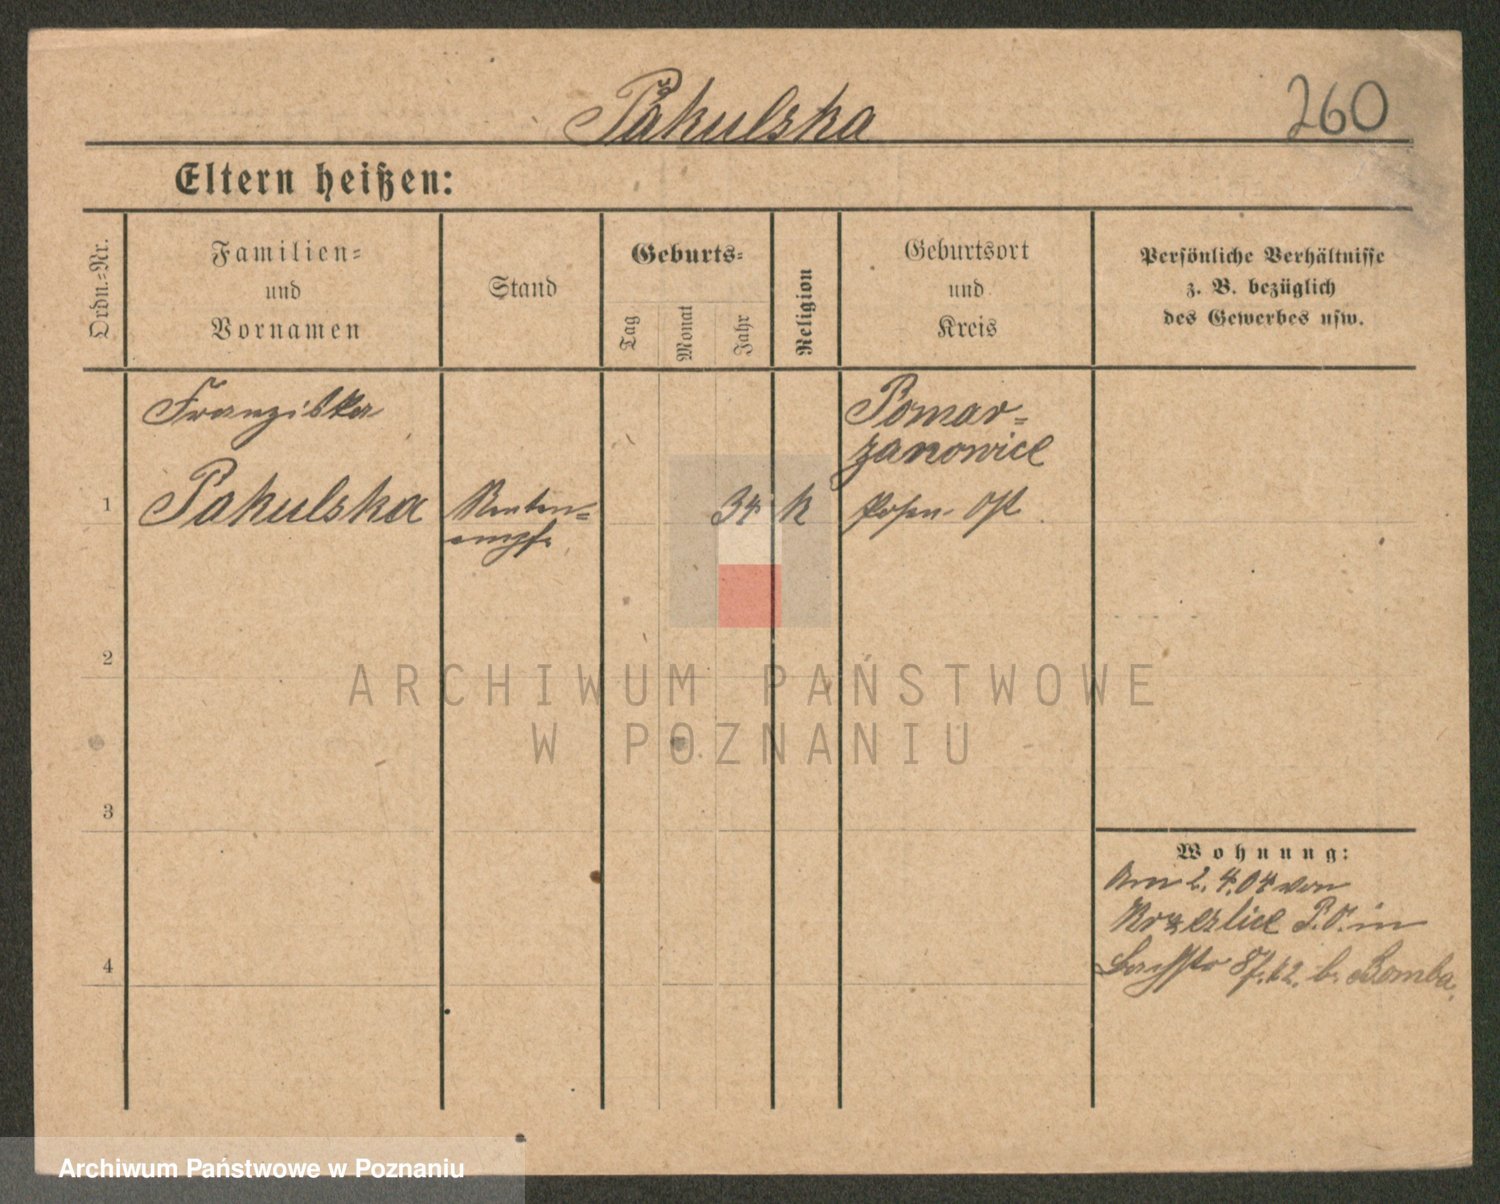 Pakulska
260
Eltern heißen:
Ordn.-Nr.
Familien-
und
Vornamen
Stand
Geburts-
Tag
Monat
Jahr
Religion
Geburtsort
und
Kreis
Persönliche Verhältnisse
z. B. bezüglich
des Gewerbes usw.
Franziska
Pomar-
zanowice
1
Pakulska
Renten-
empf.
34
k
Posen-Ost
2
ARCHIWUM PAŃSTWOWE
W POZNANIU
3
Wohnung:
Am 2.4.04 von
P.O. in
b. Bomba.
4
Archiwum Państwowe w Poznaniu